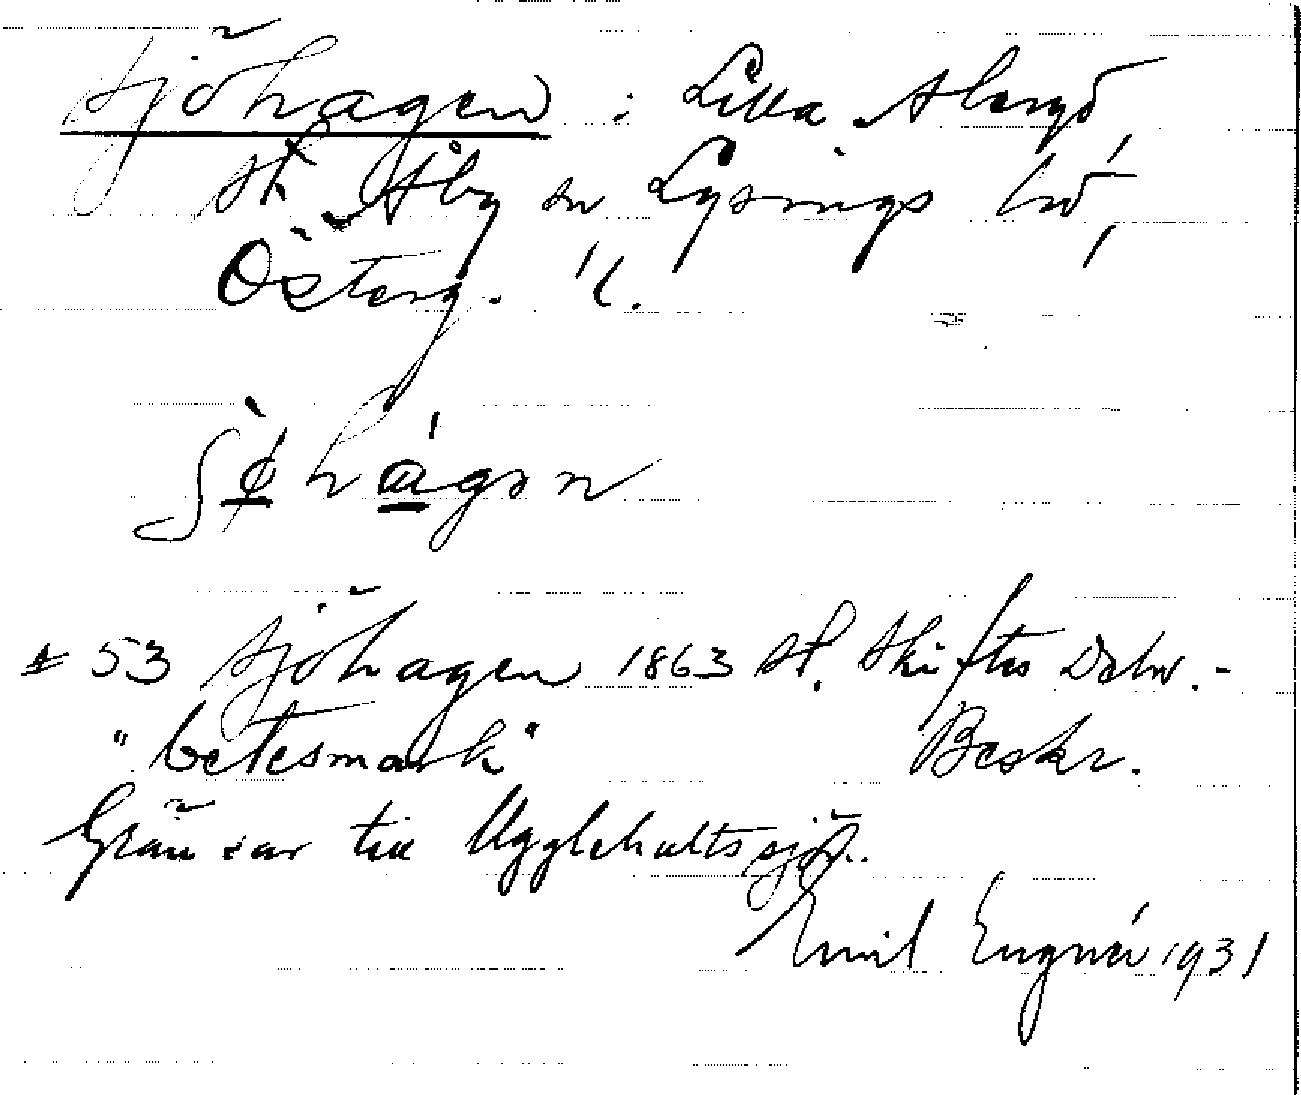 Sjöhagen : Lilla Åbergö
St. Åby sn Lysings hd,
Österg. l.
ʃø̀hágən
53 Sjöhagen 1863 st. Skiftes Deln.-
"betesmark" Beskr.
Gränsar till Ugglehultssjön.
Emil Engnér 1931